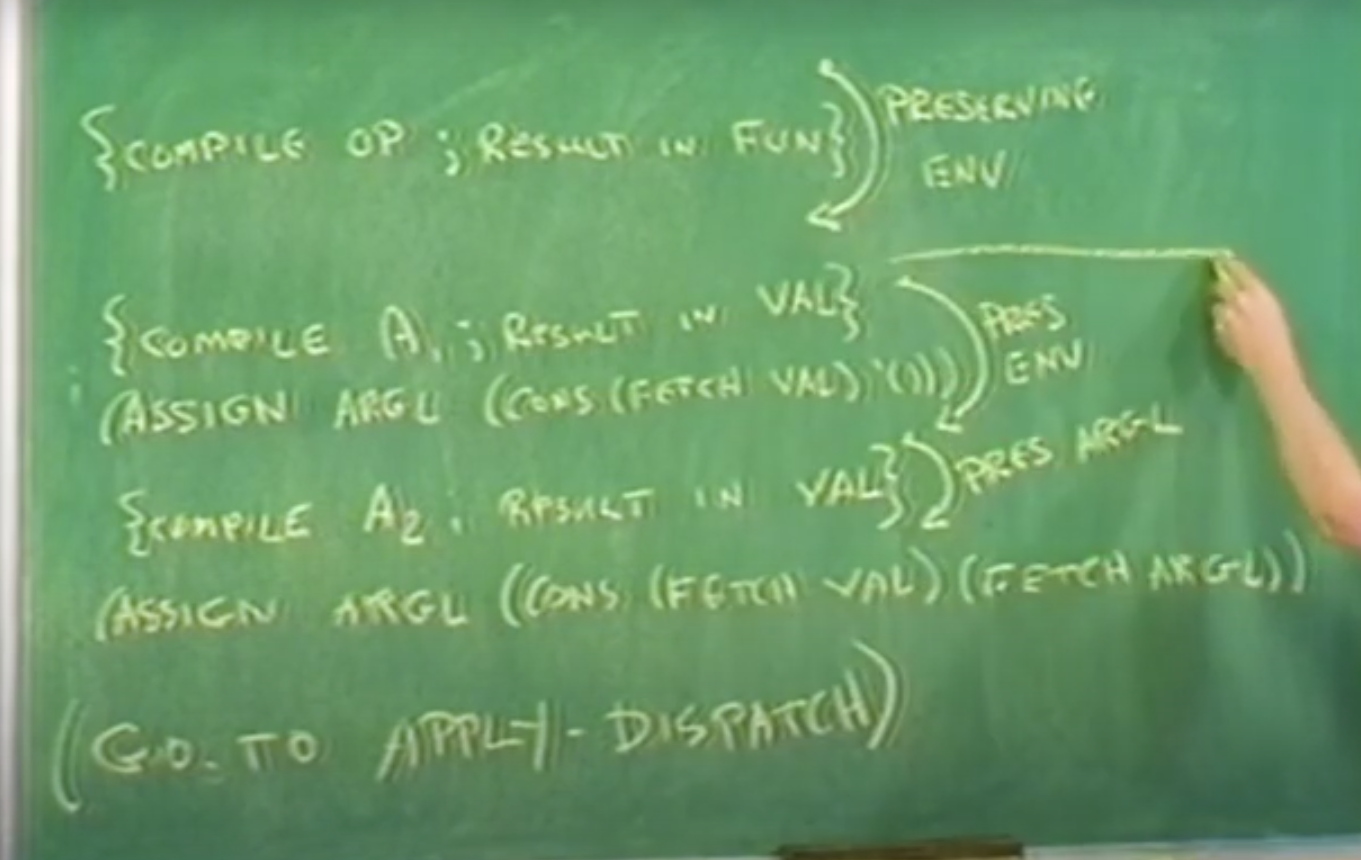 {COMPILE OP ; RESULT IN FUN} PRESERVING
ENV
{COMPILE A1 ; RESULT IN VAL} PRES
ENV
(ASSIGN ARGL ((CONS (FETCH VAL) '())))
{COMPILE A2 ; RESULT IN VAL} PRES ARGL
(ASSIGN ARGL ((CONS (FETCH VAL) (FETCH ARGL))
(GO-TO APPLY-DISPATCH)